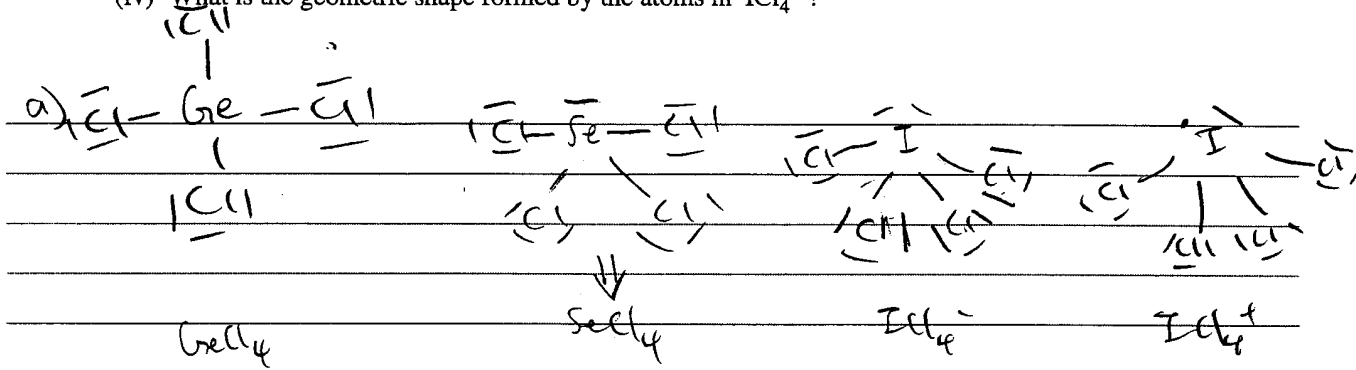 (iv) What is the geometric shape formed by the atoms in ICl₄⁻ ?
|Cl|
a) |Cl — Ge — Cl| |Cl — Se — Cl| |Cl — I |Cl I Cl|
|Cl| |Cl| |Cl| |Cl| |Cl| Cl| |Cl| |Cl|
GeCl₄ SeCl₄ ICl₄⁻ ICl₄⁺